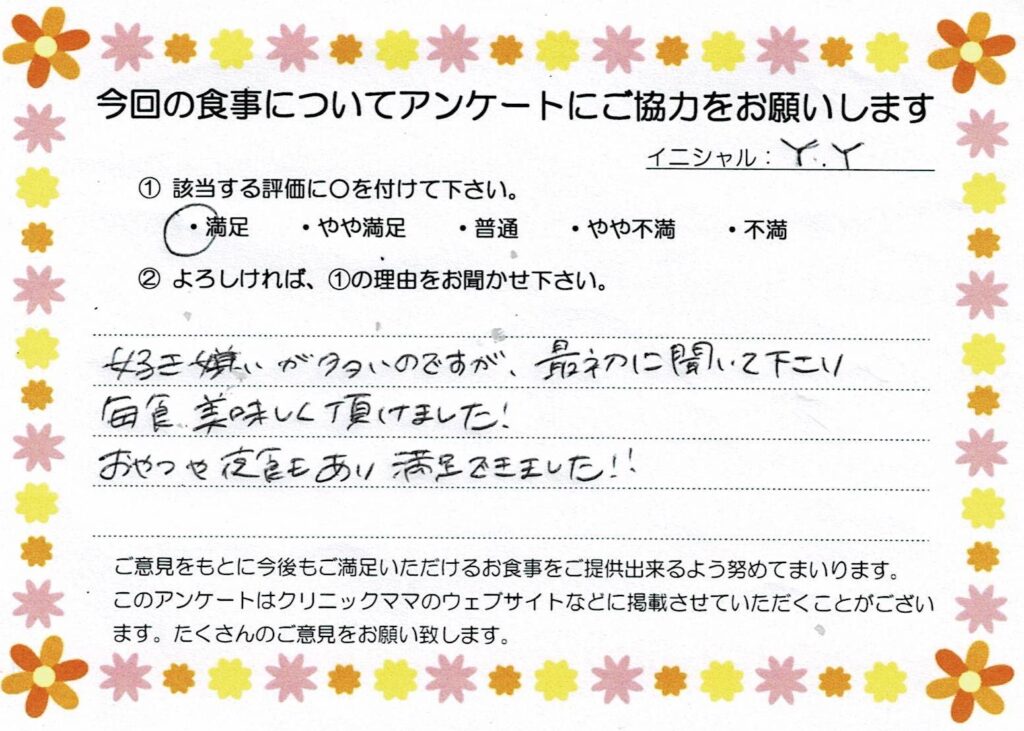 今回の食事についてアンケートにご協力をお願いします
イニシャル：Y.Y
① 該当する評価に〇を付けて下さい。
・満足 ・やや満足 ・普通 ・やや不満 ・不満
② よろしければ、①の理由をお聞かせ下さい。
好き嫌いが多いのですが、最初に聞いて下さり
毎食 美味しく頂けました！
おやつや夜食もあり満足できました！！
ご意見をもとに今後もご満足いただけるお食事をご提供出来るよう努めてまいります。
このアンケートはクリニックママのウェブサイトなどに掲載させていただくことがござい
ます。たくさんのご意見をお願い致します。